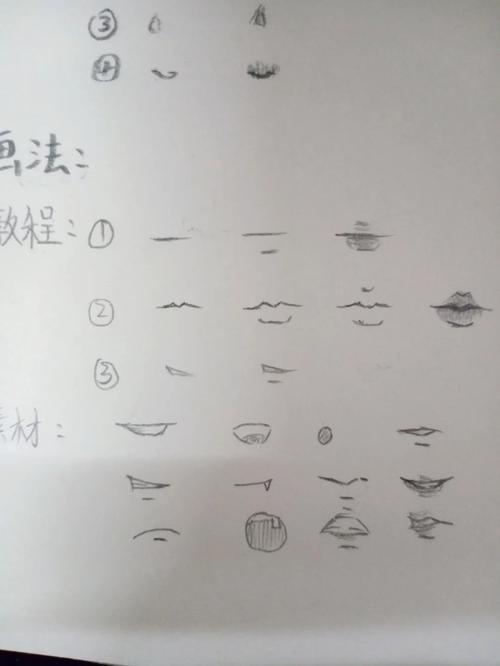 ③
④
画法：
教程：①
②
③
素材：